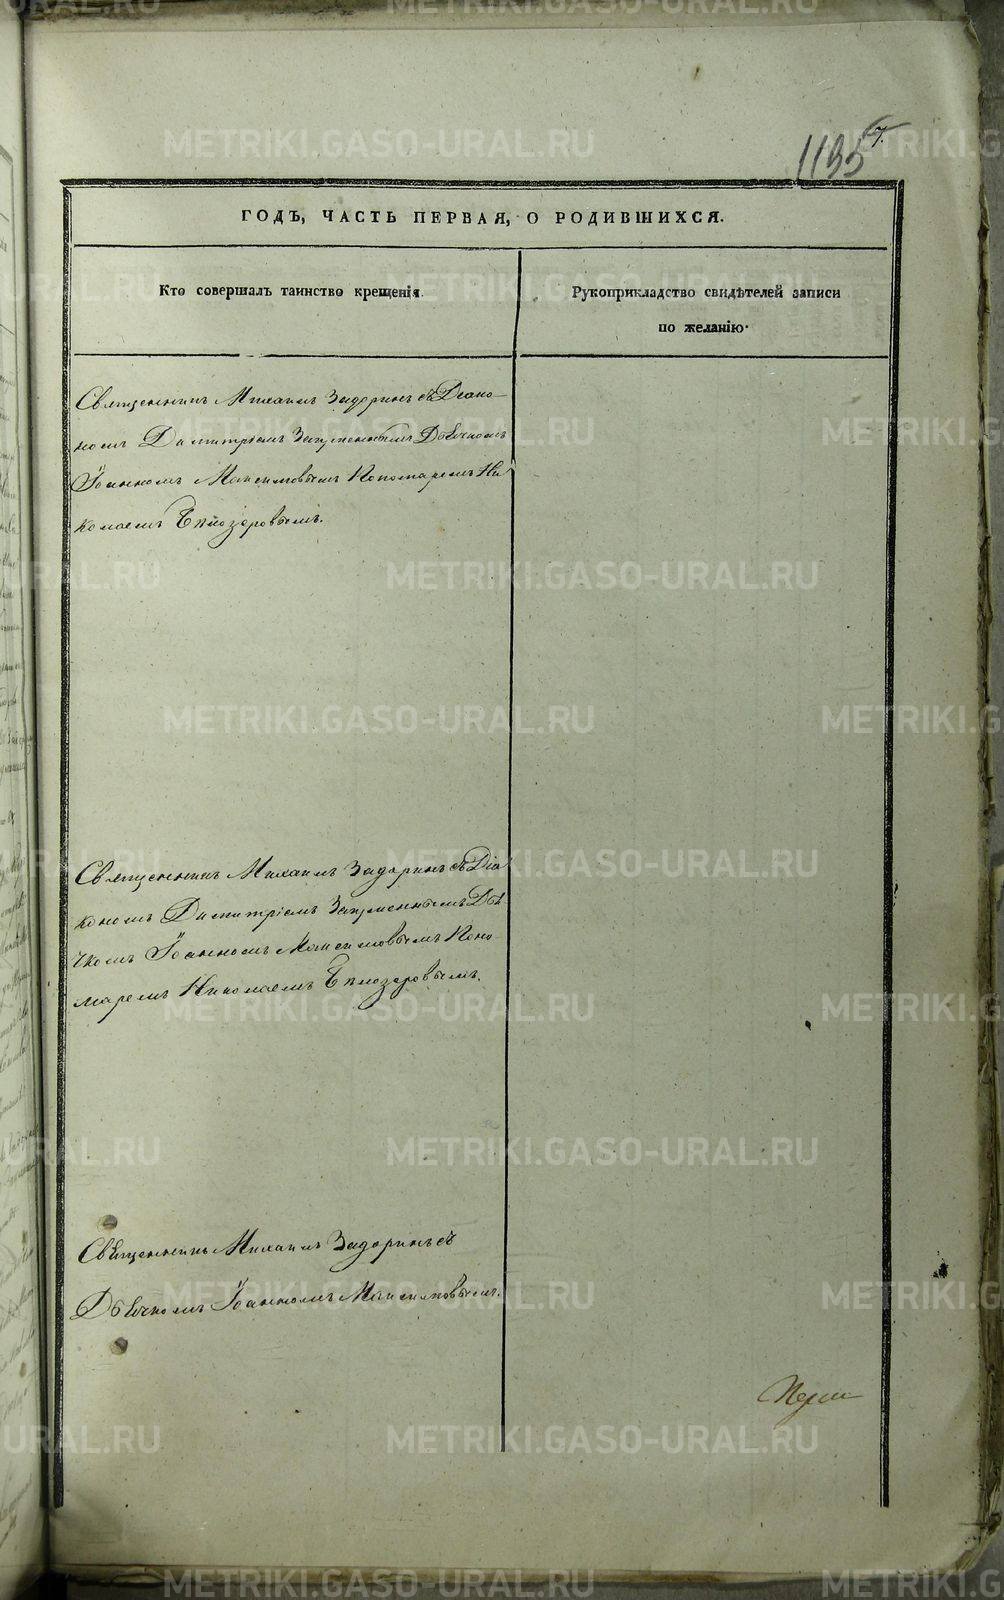 1195
7.
ГОДЪ, ЧАСТЬ ПЕРВАЯ, О РОДИВШИХСЯ.
Кто совершалъ таинство крещенія.
Рукоприкладство свидѣтелей записи
по желанію.
Священникъ Михаилъ Задоринъ съ Діако-
номъ Димитріемъ Дьячкомъ
Іоанномъ Максимовымъ Пономаремъ Ни
колаемъ Бѣлозеровымъ.
Священникъ Михаилъ Задоринъ съ Діа
кономъ Димитріемъ Дья
чкомъ Іоанномъ Максимовымъ Поно-
маремъ Николаемъ Бѣлозеровымъ.
Священникъ Михаилъ Задоринъ съ
Дьячкомъ Іоанномъ Максимовымъ.
METRIKI.GASO-URAL.RU